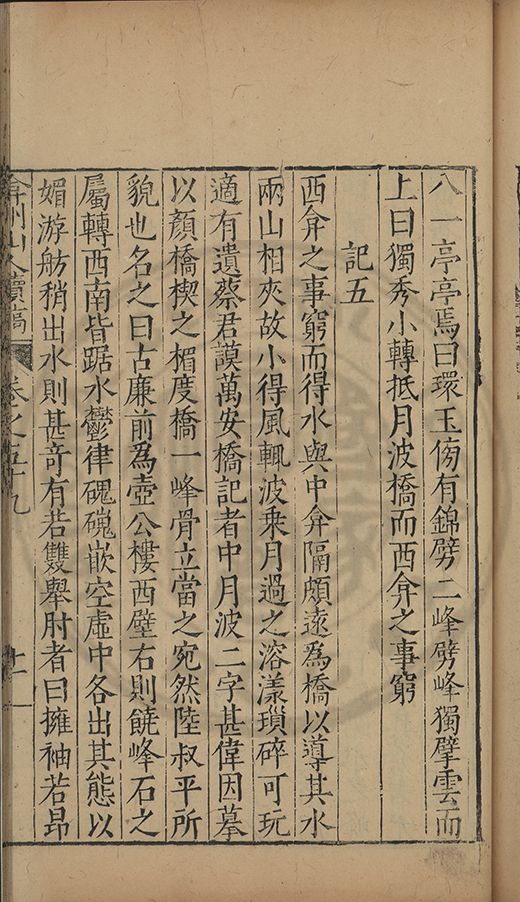 八一亭亭焉曰環玉傍有錦劈二峰劈峰獨擘雲而
上曰獨秀小轉抵月波橋而西弇之事窮
記五
西弇之事窮而得水與中弇隔頗遠為橋以導其水
兩山相夾故小得風輒波乗月過之溶漾瑣碎可玩
適有遺蔡君謨萬安橋記者中月波二字甚偉因摹
以顏橋楔之楣度橋一峰骨立當之宛然陸叔平所
貌也名之曰古廉前為壺公樓西壁右則饒峰石之
屬轉西南皆踞水鬱律磈磈嵌空虛中各出其態以
媚游舫稍出水則甚竒有若雙舉肘者曰擁袖若昂
弇州山人續稿 卷之五十九 十一